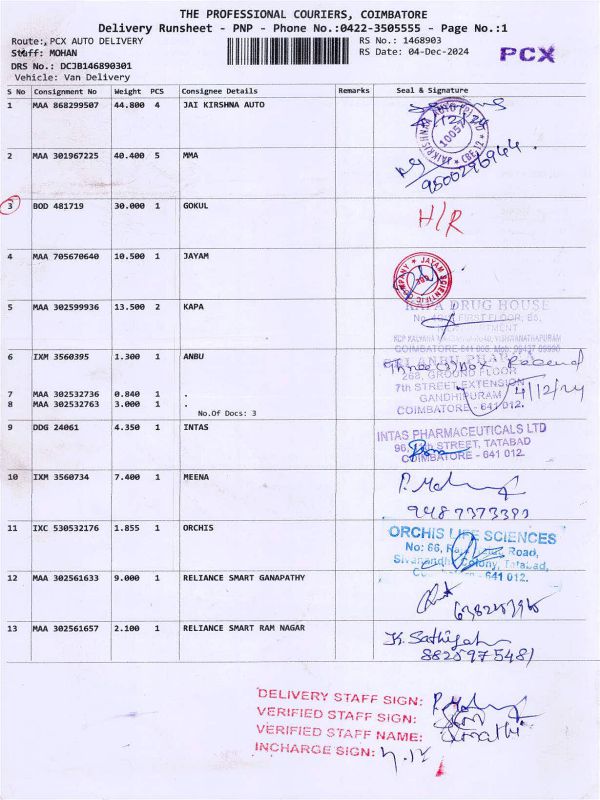 THE PROFESSIONAL COURIERS, COIMBATORE
Delivery Runsheet - PNP - Phone No.:0422-3505555 - Page No.:1
Route:, PCX AUTO DELIVERY
Staff: MOHAN
DRS No.: DCJB146890301
Vehicle: Van Delivery
RS No.: 1468903
RS Date: 04-Dec-2024
PCX
S No Consignment No Weight PCS Consignee Details Remarks Seal & Signature
1 MAA 868299507 44.800 4 JAI KIRSHNA AUTO
2 MAA 301967225 40.400 5 MMA
9500296944
3 BOD 481719 30.000 1 GOKUL H/R
4 MAA 705670640 10.500 1 JAYAM
JAYAM SCIENTIFIC COMPANY
5 MAA 302599936 13.500 2 KAPA
KAPA DRUG HOUSE
6 IXM 3560395 1.300 1 ANBU
268, GROUND FLOOR
7th STREET EXTENSION
GANDHIPURAM 4/12/24
COIMBATORE - 641 012.
7 MAA 302532736 0.840 1 .
8 MAA 302532763 3.000 1 .
No.Of Docs: 3
9 DDG 24061 4.350 1 INTAS
INTAS PHARMACEUTICALS LTD
STREET, TATABAD
COIMBATORE - 641 012.
10 IXM 3560734 7.400 1 MEENA
9487373393
11 IXC 530532176 1.855 1 ORCHIS
ORCHIS LIFE SCIENCES
No: 66, Road,
Colony, Tatabad,
641 012.
12 MAA 302561633 9.000 1 RELIANCE SMART GANAPATHY
13 MAA 302561657 2.100 1 RELIANCE SMART RAM NAGAR
8825975481
DELIVERY STAFF SIGN:
VERIFIED STAFF SIGN:
VERIFIED STAFF NAME:
INCHARGE SIGN: